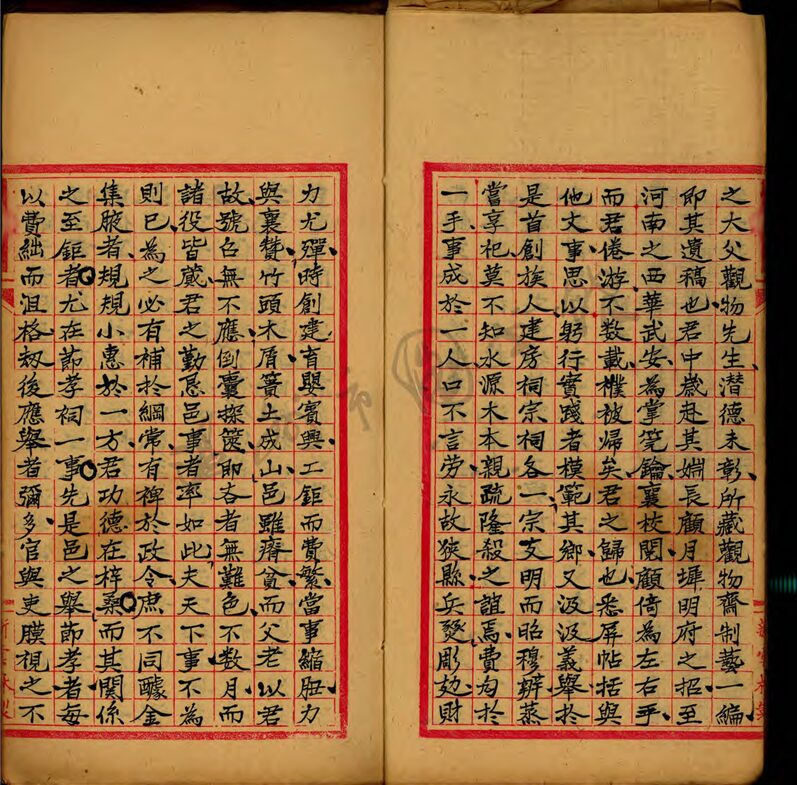 之大父觀物先生潛德未彰所藏觀物齋制藝一編
即其遺稿也君中歲赴其婣長顧月墀明府之招至
河南之西華武安為掌筦鑰襄校閱顧倚為左右手
而君倦游不数載襆被帰矣君之歸也悉屏帖括與
他文事思以躬行實踐者模範其鄉又汲汲義舉於
是首創族人建房祠宗祠各一宗支明而昭穆辨蒸
嘗享祀莫不知水源木本親疏隆殺之誼焉費匄於
一手事成於一人口不言劳永故狹縣兵燹彫攰財
力尤殫時創建育嬰賓興工鉅而費繁當事縮朒力
與襄贊竹頭木屑簣土成山邑雖瘠貧而父老以君
故號召無不應倒囊探篋即吝者無難色不数月而
諸役皆蕆君之勤恳邑事者率如此夫天下事不為
則已為之必有補於綱常有裨於政令庶不同醵金
集腋者規規小惠於一方君功德在梓桑而其関係
之至鉅者尤在節孝祠一事先是邑之舉節孝者每
以費絀而沮格劫後應舉者彌多官與吏膜視之不